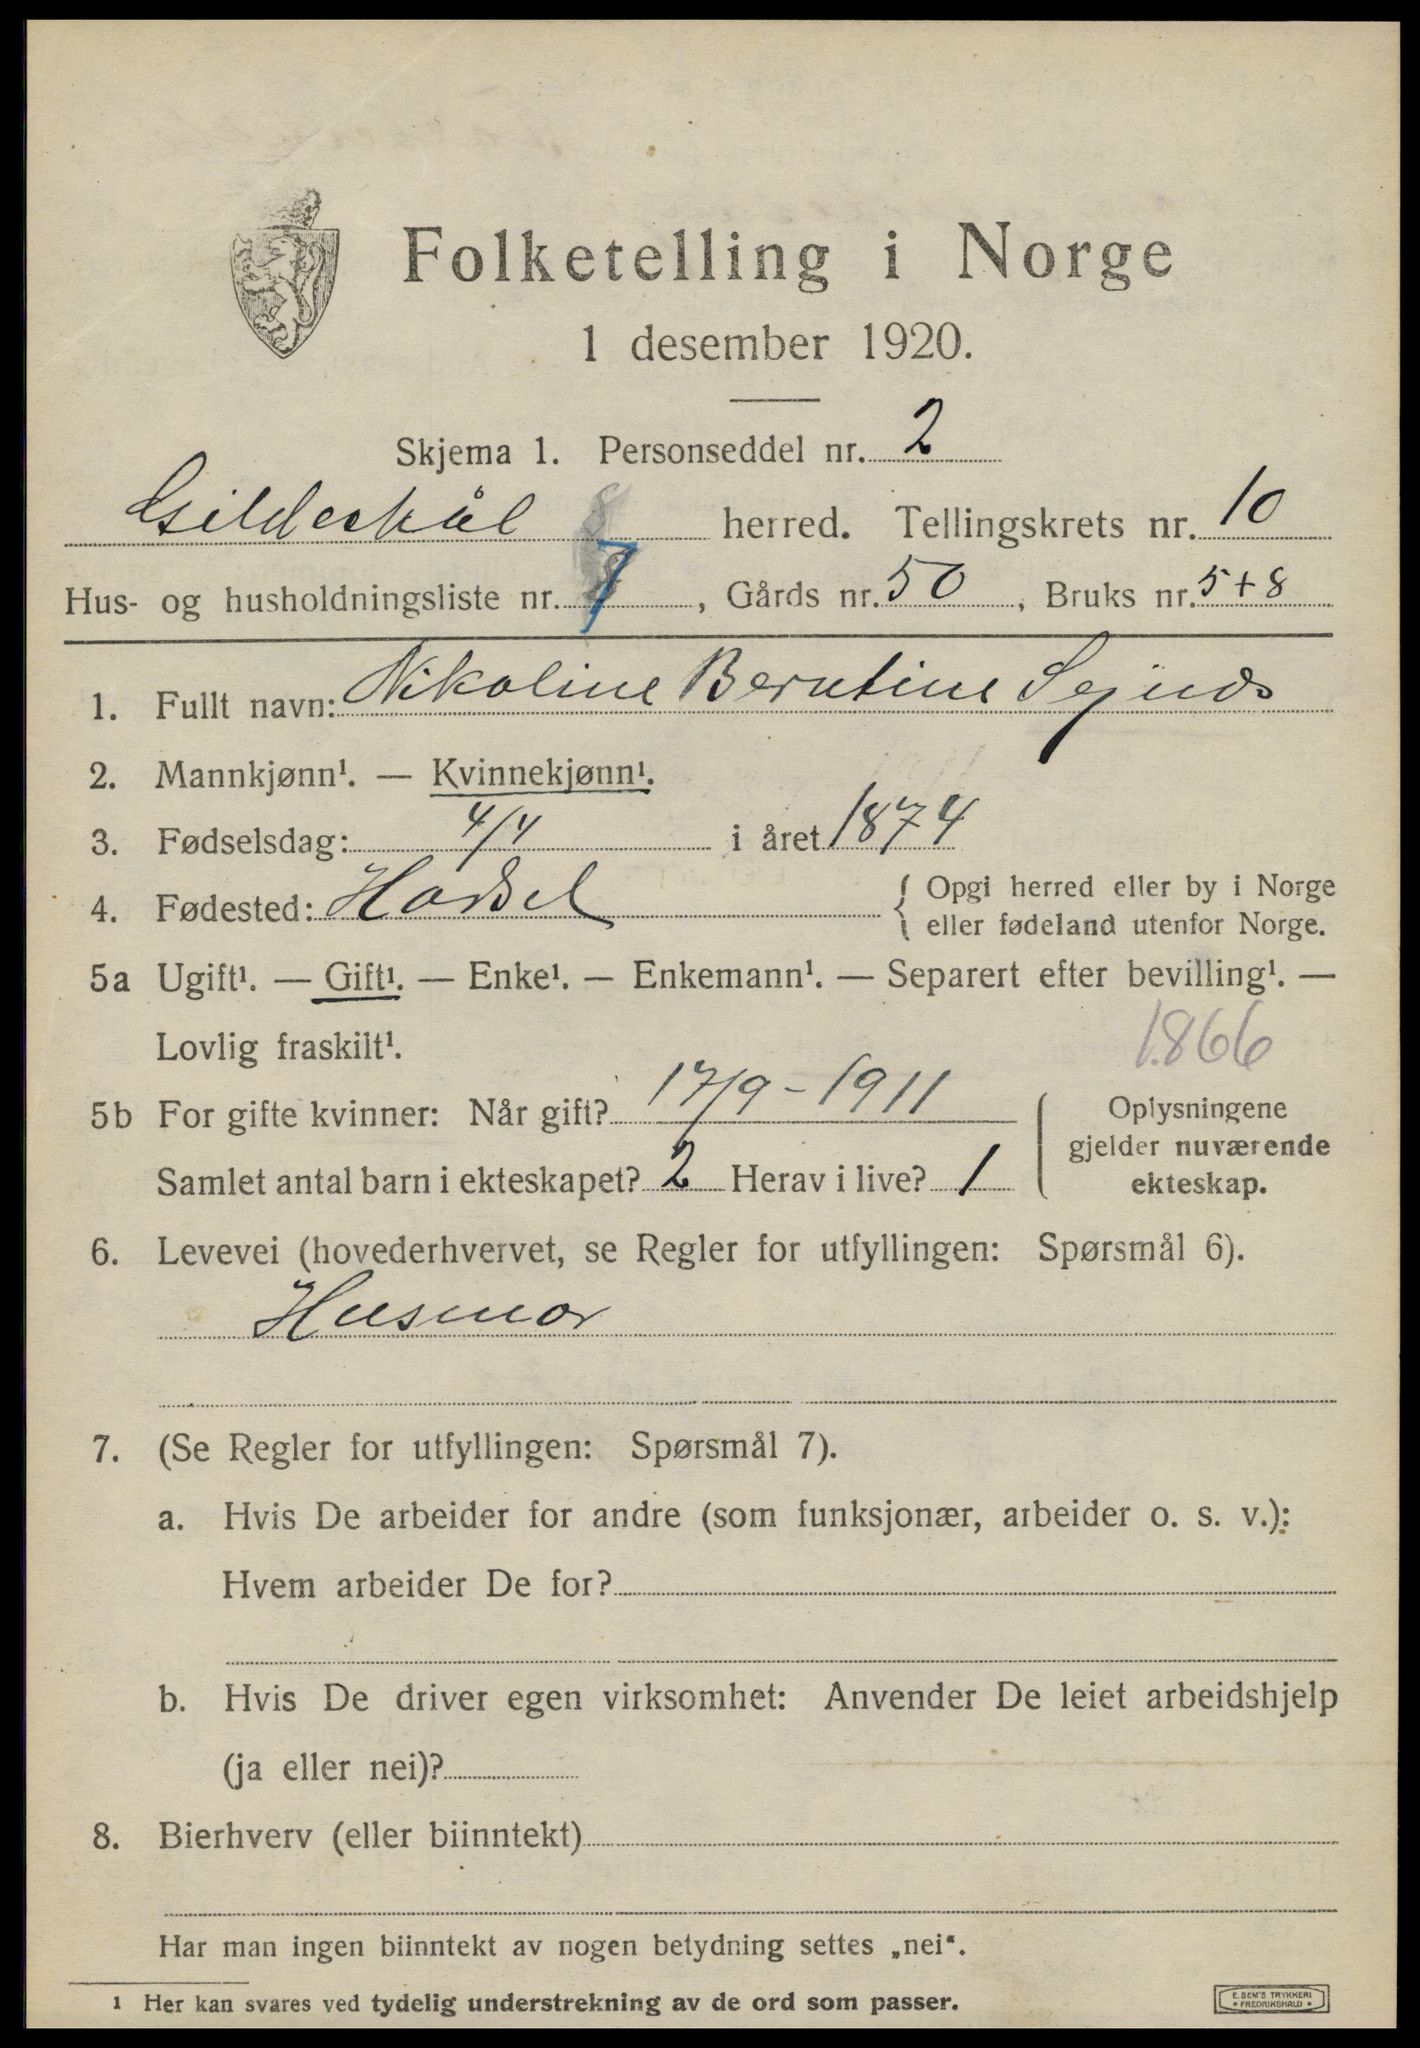 Folketelling i Norge
1 desember 1920.
Skjema 1. Personseddel nr. 2
Gildeskål herred. Tellingskrets nr. 10
Hus- og husholdningsliste nr. 7, Gårds nr. 50, Bruks nr. 5+8
1. Fullt navn: Nikoline Berntine
2. Mannkjønn¹. — Kvinnekjønn¹.
3. Fødselsdag: 4/4 i året 1874
4. Fødested: Hadsel { Opgi herred eller by i Norge
eller fødeland utenfor Norge.
5a Ugift¹. — Gift¹. — Enke¹. — Enkemann¹. — Separert efter bevilling¹. —
Lovlig fraskilt¹. 1866
5b For gifte kvinner: Når gift? 17/9-1911
Samlet antal barn i ekteskapet? 2 Herav i live? 1
{ Oplysningene
gjelder nuværende
ekteskap.
6. Levevei (hovederhvervet, se Regler for utfyllingen: Spørsmål 6).
Husmor
7. (Se Regler for utfyllingen: Spørsmål 7).
a. Hvis De arbeider for andre (som funksjonær, arbeider o. s. v.):
Hvem arbeider De for?
b. Hvis De driver egen virksomhet: Anvender De leiet arbeidshjelp
(ja eller nei)?
8. Bierhverv (eller biinntekt)
Har man ingen biinntekt av nogen betydning settes „nei“.
1 Her kan svares ved tydelig understrekning av de ord som passer.
E. SEM'S TRYKKERI
• FREDRIKSHALD •